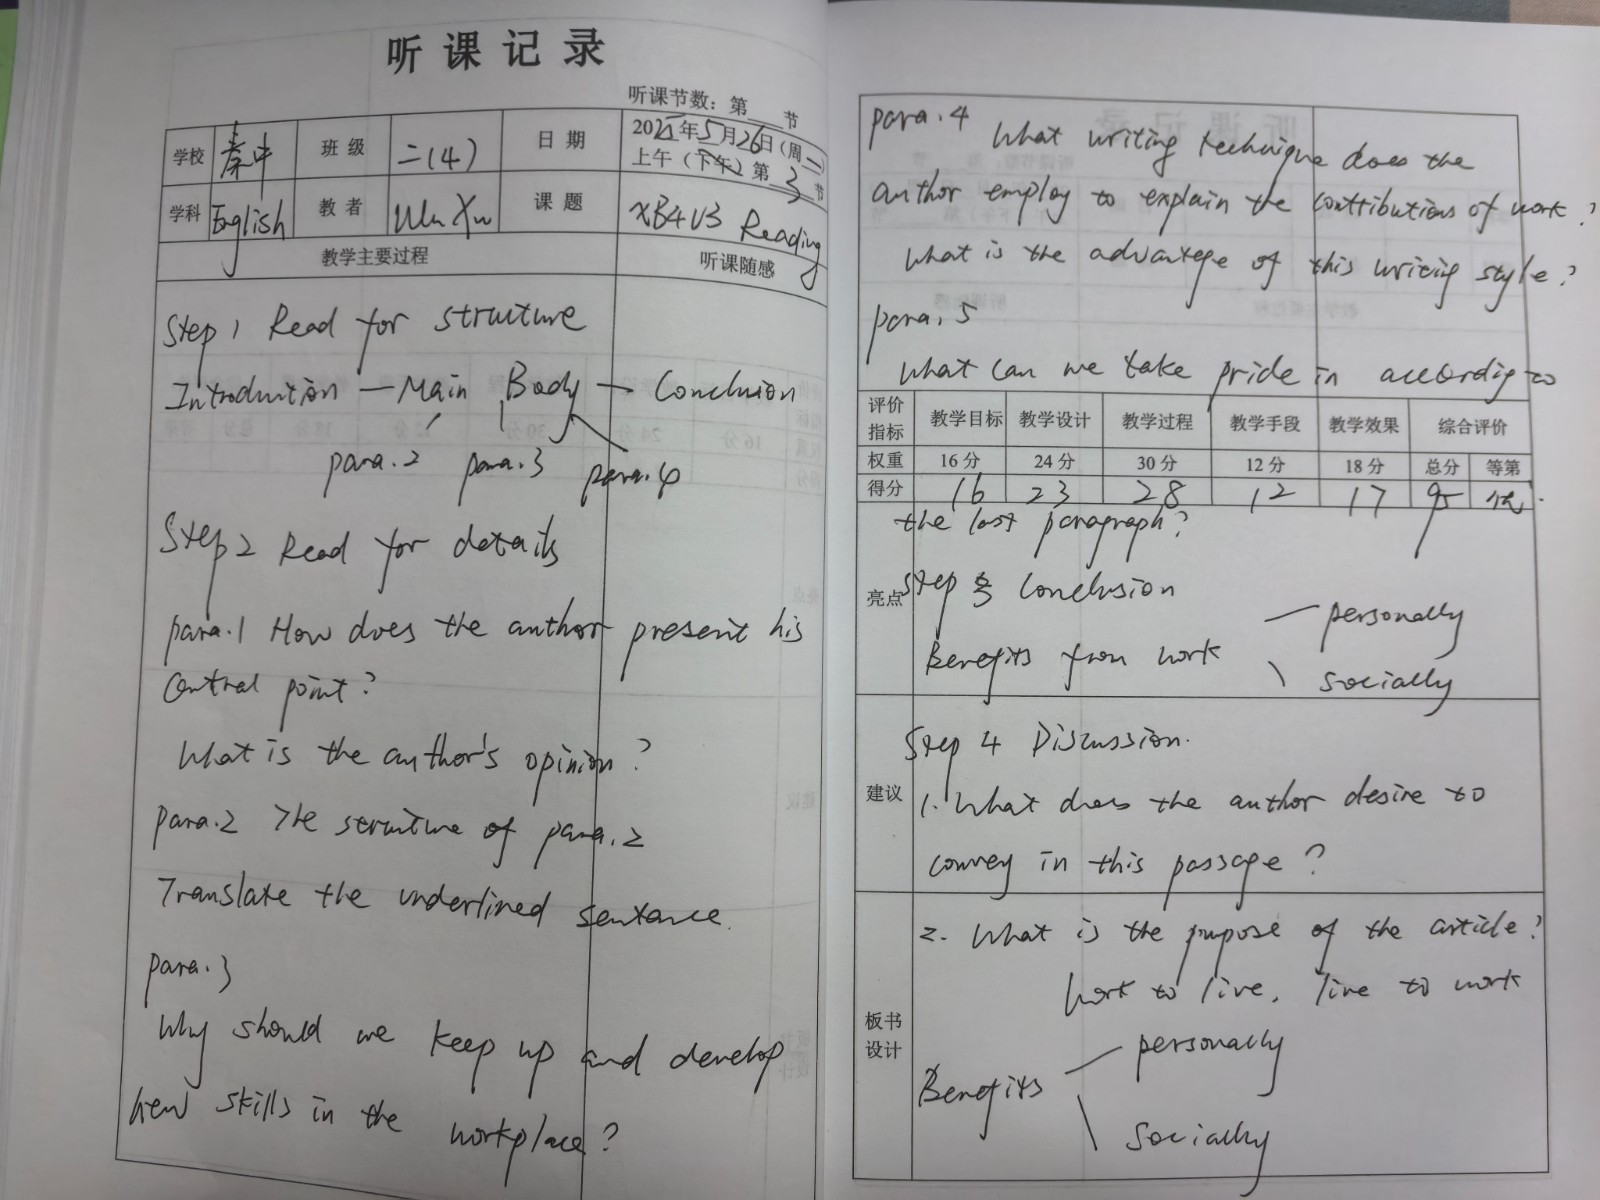 听课记录
听课节数：第 节
学校 秦中 班级 二(4) 日期 年5月26日(周二
上午（下午）第3节
学科 English 教者 Wu Xu 课题 XB4U3 Reading
教学主要过程 听课随感
Step 1 Read for structure
Introduction — Main Body — Conclusion
para.2 para.3 para.4
Step 2 Read for details
para.1 How does the author present his
central point?
What is the author's opinion?
para.2 The structure of para.2
Translate the underlined sentence.
para.3
Why should we keep up and develop
new skills in the workplace?
para.4 What writing technique does the
author employ to explain the contributions of work?
What is the advantage of this writing style?
para.5
What can we take pride in according to
评价指标 教学目标 教学设计 教学过程 教学手段 教学效果 综合评价
权重 16分 24分 30分 12分 18分 总分 等第
得分 16 23 28 12 17 95 优.
the last paragraph?
亮点 Step 3 Conclusion
personally
Benefits from work
socially
Step 4 Discussion.
建议 1. What does the author desire to
convey in this passage?
2. What is the purpose of the article?
Work to live, live to work
板书设计
personally
Benefits
socially